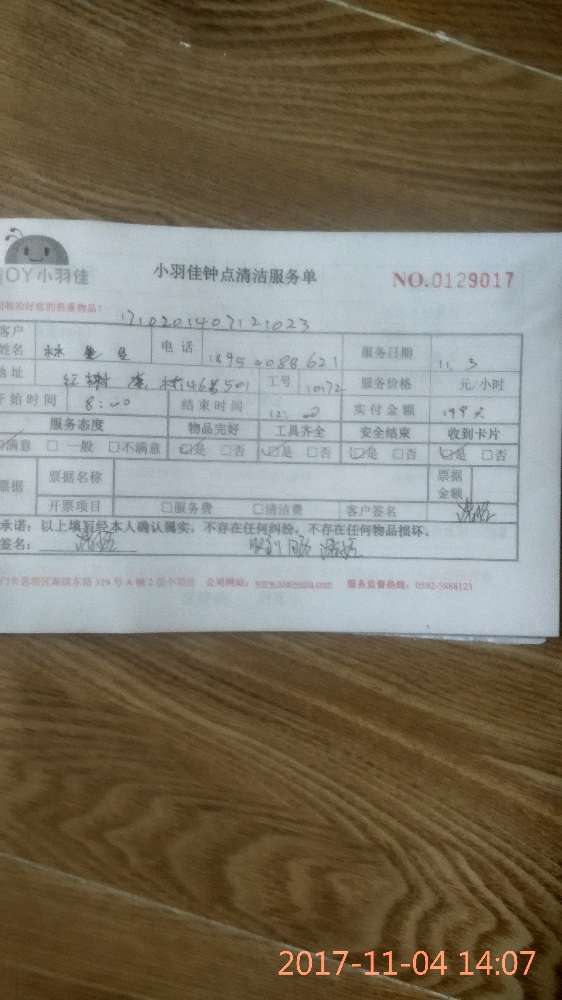 JOY小羽佳 小羽佳钟点清洁服务单 NO.0129017
1710201407121023
客户姓名 林先生 电话 18950088621 服务日期 11.3
地址 红树 468501 工号 10172 服务价格 元/小时
开始时间 8:00 结束时间 12:00 实付金额
服务态度 物品完好 工具齐全 安全结束 收到卡片
满意 □一般 □不满意 是 □否 是 □否 是 □否 是 □否
票据 票据名称 票据金额
开票项目 □服务费 □清洁费 客户签名
承诺：以上填写经本人确认属实，不存在任何纠纷，不存在任何物品损坏。
签名：
319号A幢2层小羽佳 公司网站： 服务监督热线：0592-5888123
2017-11-04 14:07